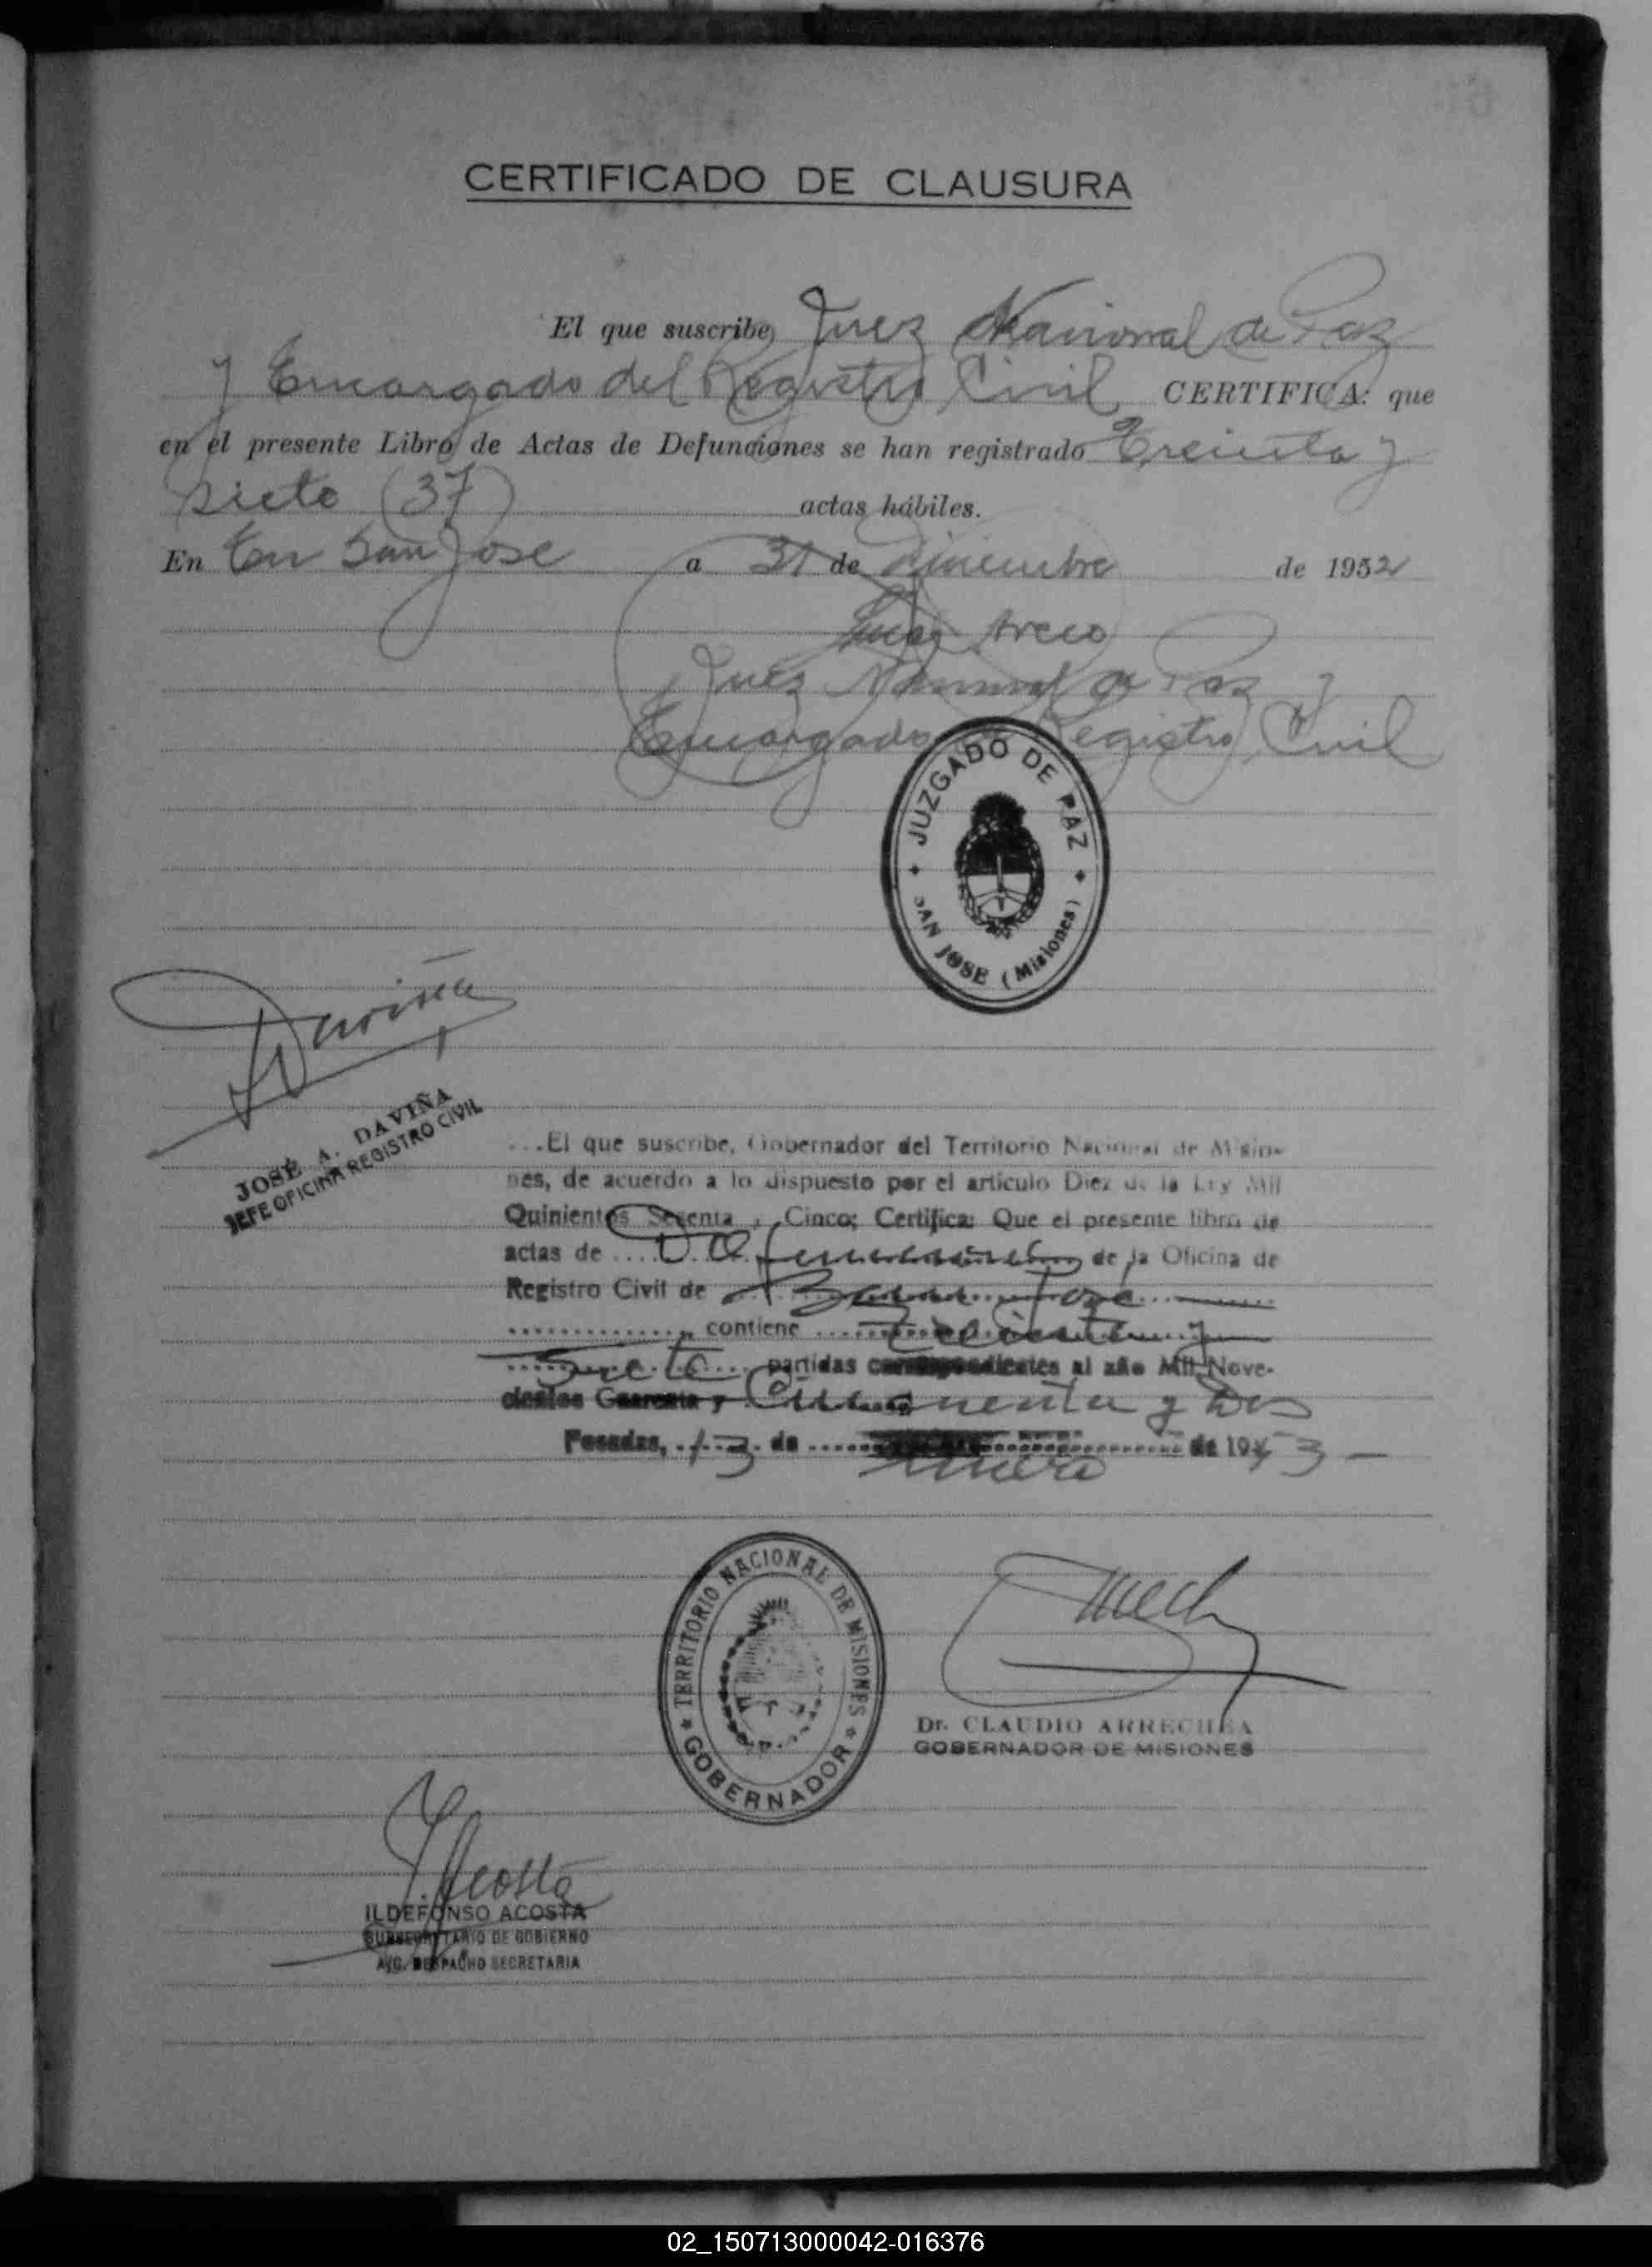 CERTIFICADO DE CLAUSURA
El que suscribe, Juez Nacional de Paz
y Encargado del Registro Civil CERTIFICA: que
en el presente Libro de Actas de Defunciones se han registrado Treinta y
siete (37) actas hábiles.
En En San Jose a 31 de diciembre de 1952
Areco
Juez Nacional de Paz y
Encargado Registro Civil
JUZGADO DE PAZ
SAN JOSE (Misiones)
Daviña
JOSÉ A. DAVIÑA
JEFE OFICINA REGISTRO CIVIL
...El que suscribe, Gobernador del Territorio Nacional de Misio-
nes, de acuerdo a lo dispuesto por el artículo Diez de la Ley Mil
Quinientos Sesenta y Cinco; Certifica: Que el presente libro de
actas de .... Defunciones de la Oficina de
Registro Civil de San José
contiene Treinta y
Siete partidas correspondientes al año Mil Nove-
cientos Cuarenta y Cincuenta y Dos
Posadas, 13 de Enero de 1953
TERRITORIO NACIONAL DE MISIONES
GOBERNADOR
Dr. CLAUDIO ARRECHEA
GOBERNADOR DE MISIONES
Acosta
ILDEFONSO ACOSTA
SUBSECRETARIO DE GOBIERNO
A/C. DESPACHO SECRETARIA
02_150713000042-016376